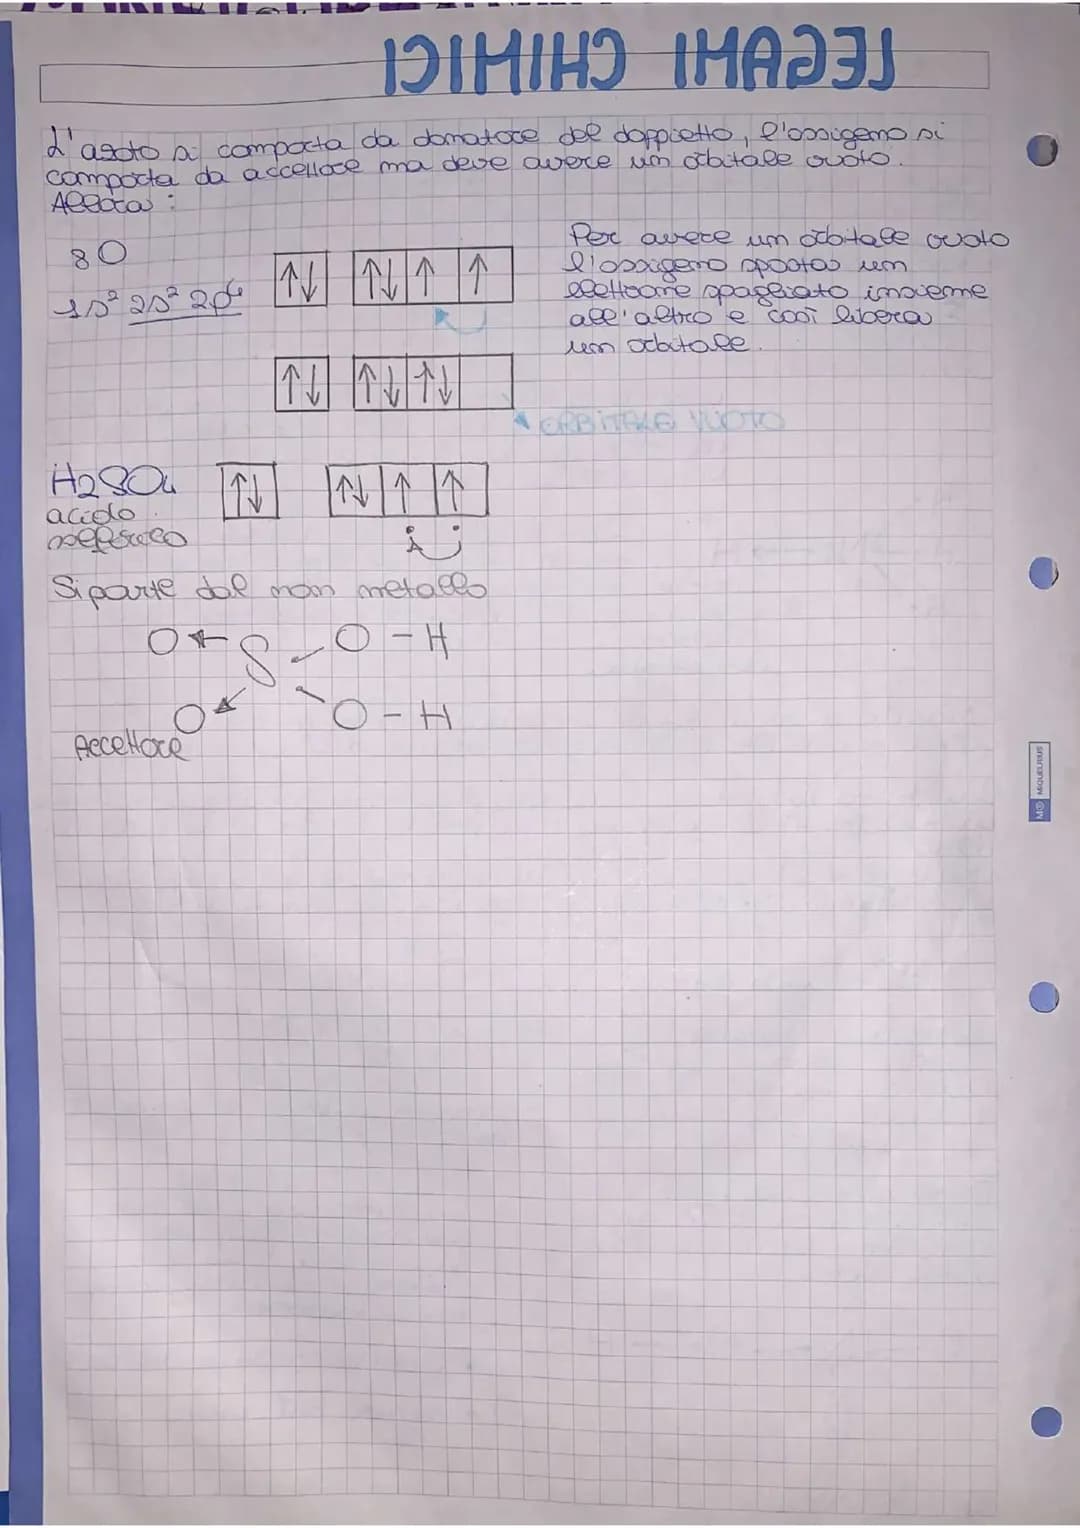 LEGAMI CHIMICI
L'azoto si comporta da donatore del doppietto, l'ossigeno si
comporta da accettore ma deve avere un orbitale vuoto.
Allora:
8O
1s² 2s² 2p⁴
Per avere un orbitale vuoto
l'ossigeno sposta un
elettrone spagliato insieme
all'altro e così libera
un orbitale.
ORBITALE VUOTO
H2SO4
acido
solforico
Si parte dal non metallo
O S O - H
O O - H
Accettore
MIQUELRIUS